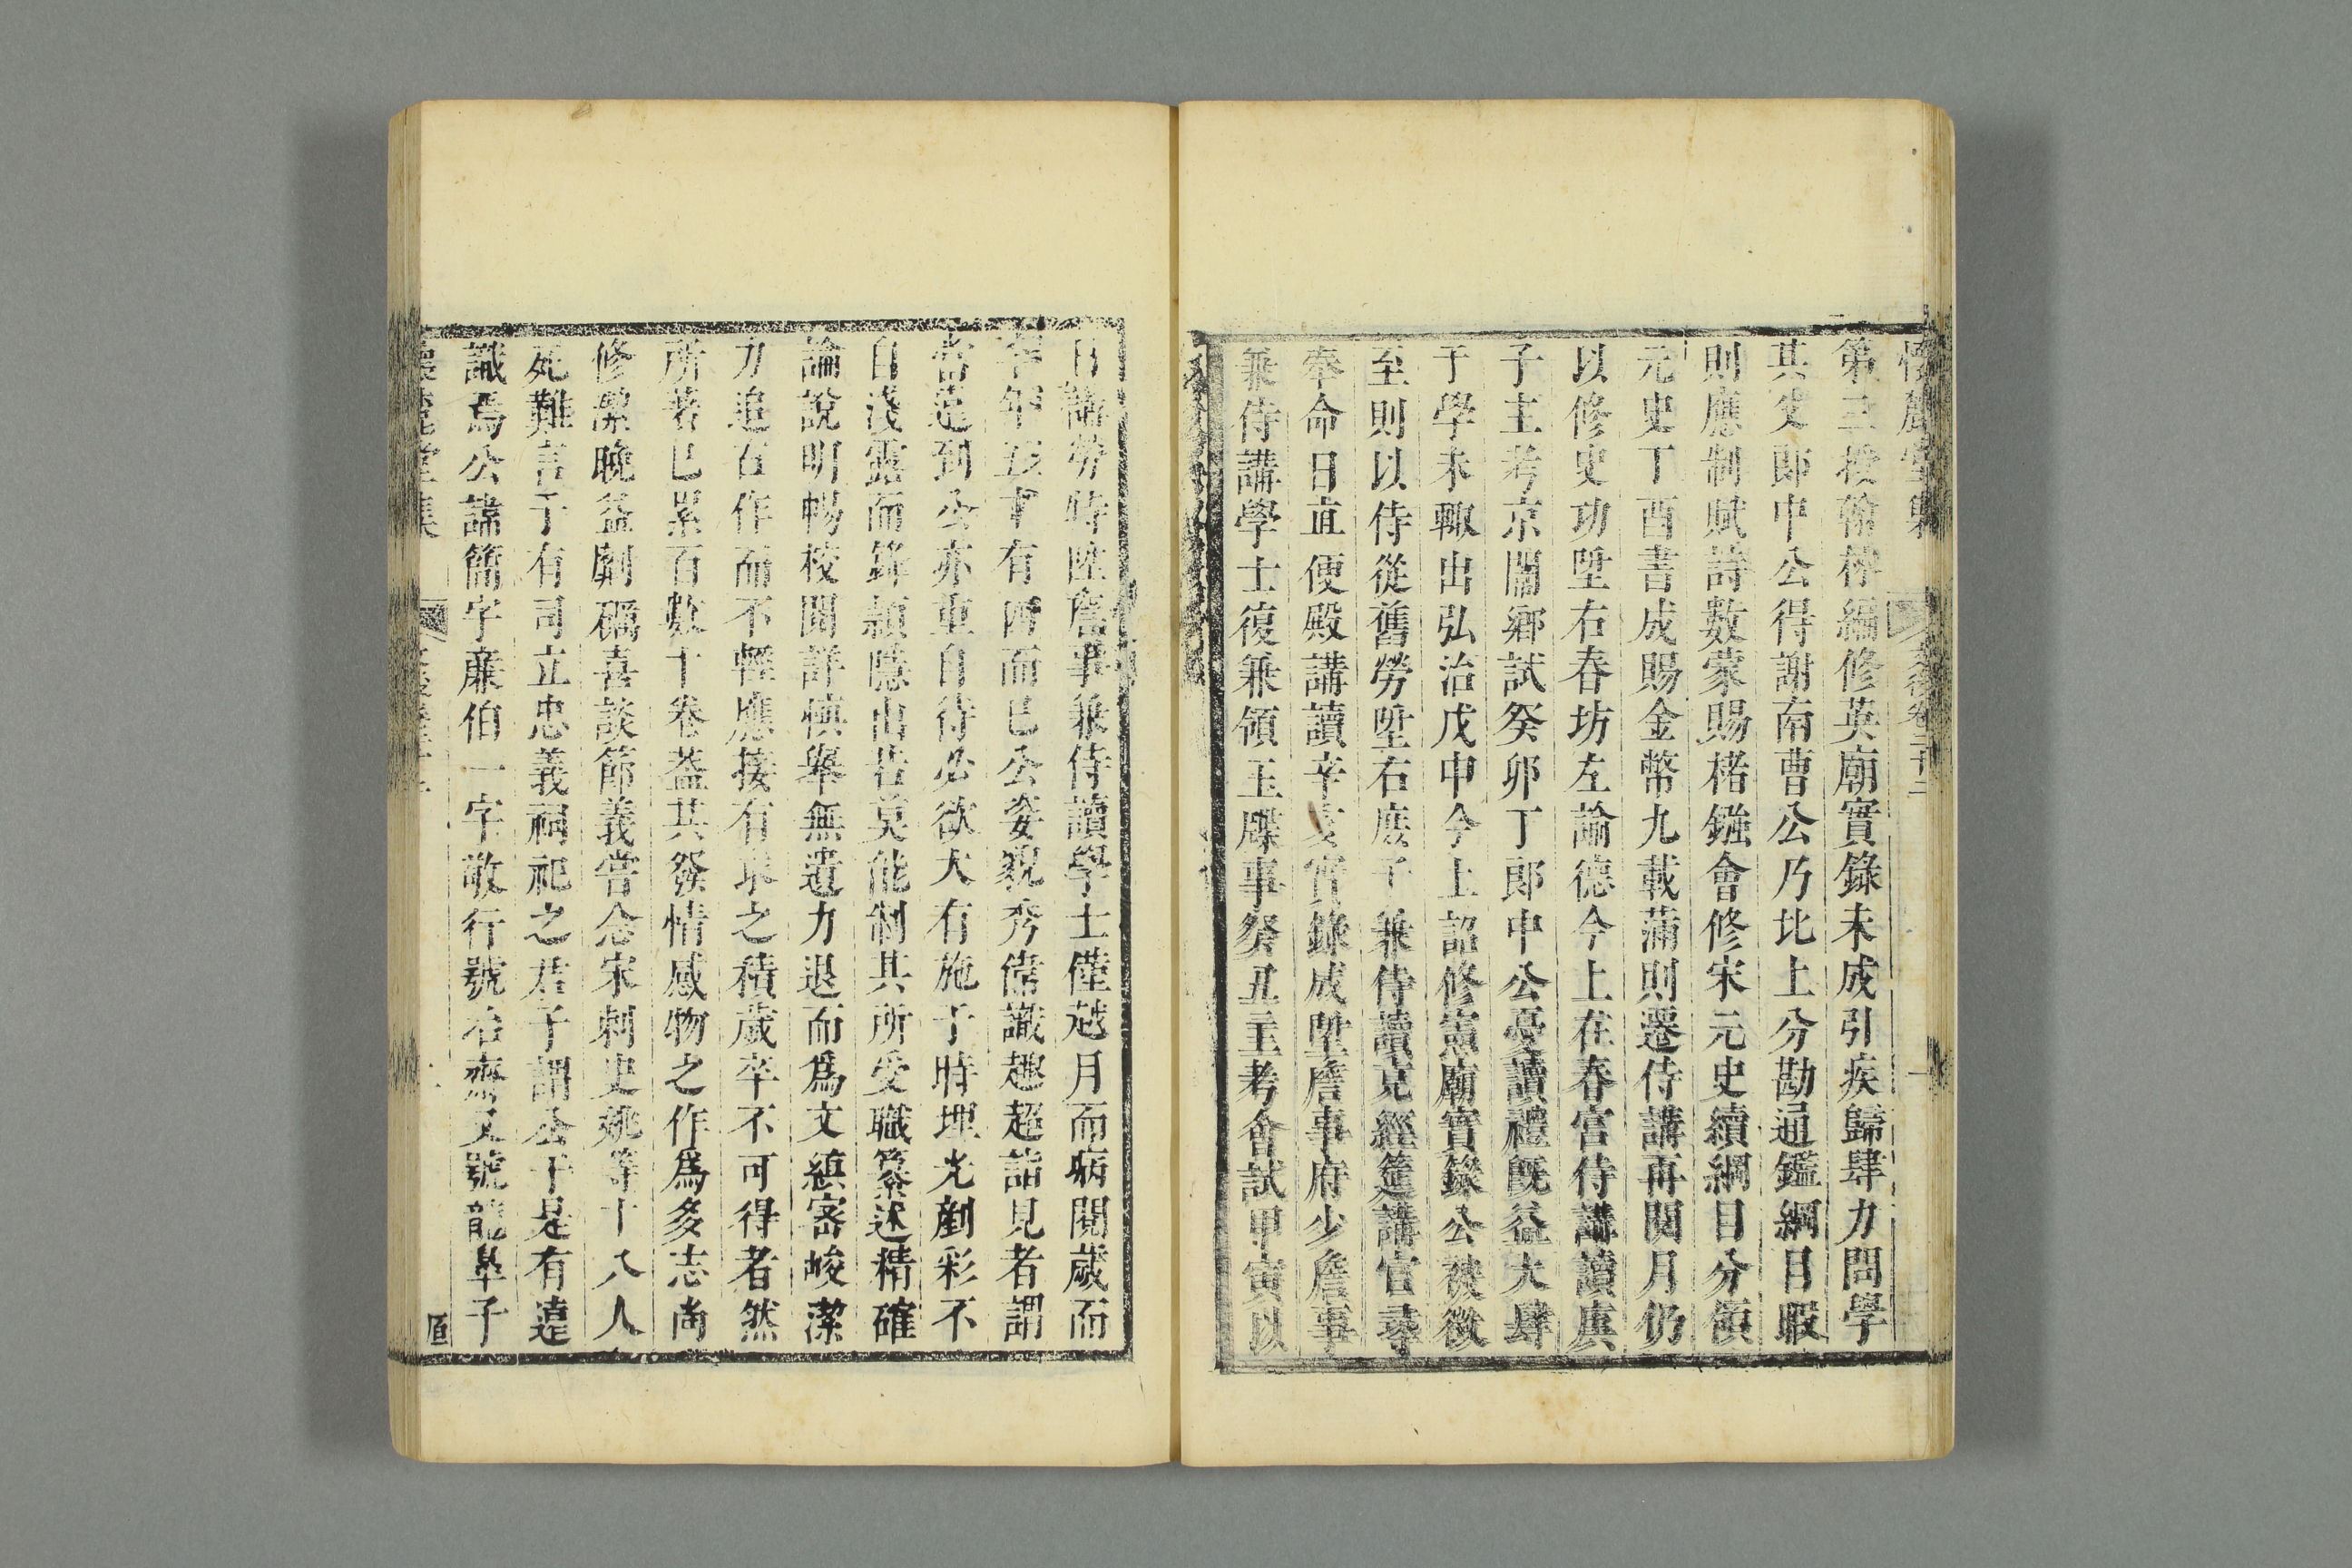 懷麓堂集 文後卷二十二
第二授翰林編修英廟實錄未成引疾歸肆力問學
其父郎中公得謝南曹公乃北上分勘通鑑綱目暇
則應制賦詩數蒙賜楮鏹會修宋元史續綱目分領
元史丁酉書成賜金幣九載蒲則遷侍講再閱月仍
以修史功陞右春坊左諭德今上在春宮侍講讀庻
子主考京闈鄉試癸卯丁郎中公憂讀禮旣益大肆
于學未輙出弘治戊申今上詔修憲廟實錄公被徵
至則以侍從舊勞陞右庶子兼侍讀充經筵講官尋
奉命日直便殿講讀辛亥實錄成陞詹事府少詹事
兼侍講學士復兼領玉牒事癸丑主考會試甲寅以
日講勞時陞詹事兼侍讀學士僅越月而病閱歲而
卒年五十有四而已公姿貌秀偉識趣超詣見者謂
當遠到公亦重自待必欲大有施于時埋光剷彩不
自淺露而鋒頴隱出若莫能制其所受職纂述精確
論說明暢校閱詳慎舉無遺力退而爲文縝宻峻潔
力追古作而不輕應接有求之積歲卒不可得者然
所著已累百數十卷葢其發情感物之作爲多志尚
修潔晚益劘礪喜談節義嘗念宋刺史姚等十八人
死難言于有司立忠義祠祀之君子謂公于是有遠
識焉公諱簡字廉伯一字敬行號冶齋又號龍臯子
懷麓堂集